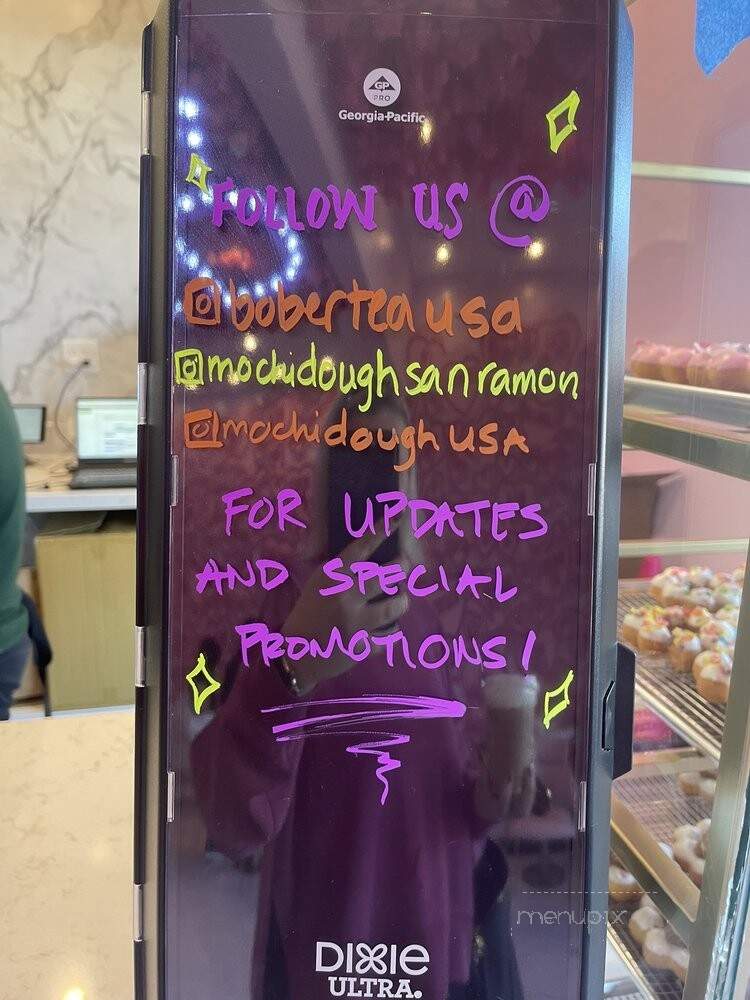 GP
PRO
Georgia-Pacific
FOLLOW US @
bobertea usa
mochidoughsanramon
mochidough USA
FOR UPDATES
AND SPECIAL
PROMOTIONS!
menupix
DIXIE
ULTRA.